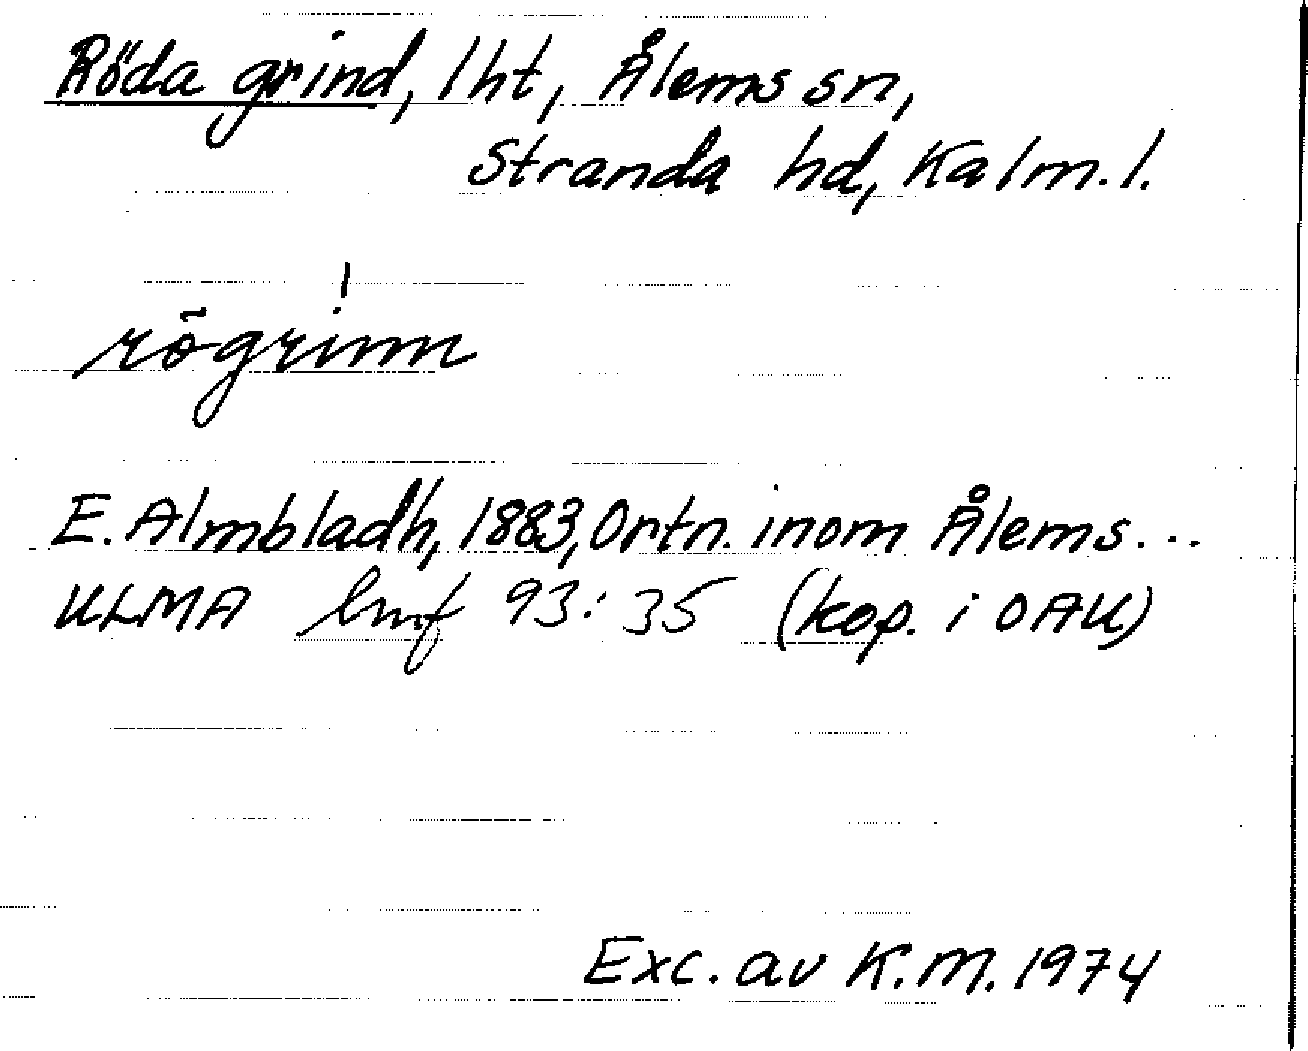 Röda grind, lht, Ålems sn,
Stranda hd, Kalm. l.
rögrinn
E. Almbladh, 1883, Ortn. inom Ålems...
ULMA hmf 93:35 (kop. i OAU)
Exc. av K.M. 1974